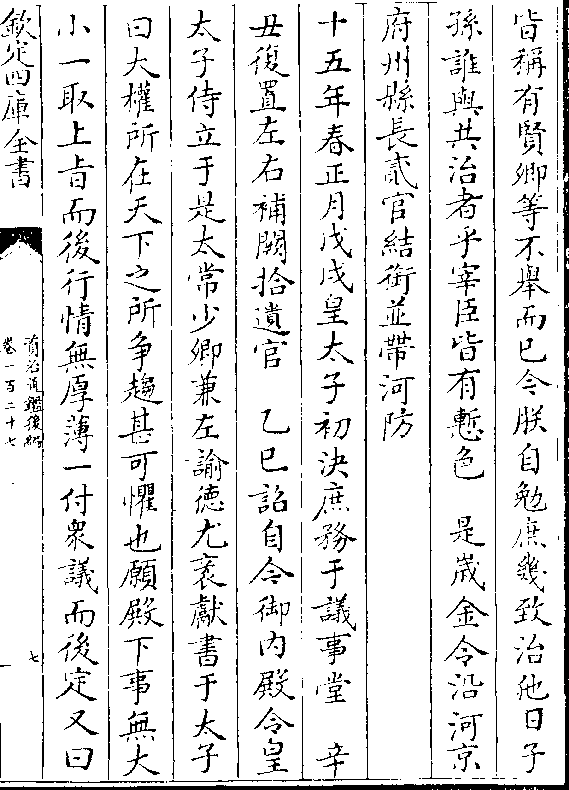 皆稱有賢卿等不舉而已今朕自勉庶幾致治他日子
孫誰與共治者乎宰臣皆有慙色　是嵗金令沿河京
府州縣長貳官結銜並帶河防
十五年春正月戊戌皇太子初決庶務于議事堂　辛
丑復置左右補闕拾遺官　乙巳詔自今御內殿令皇
太子侍立于是太常少卿兼左諭德尤袤獻書于太子
曰大權所在天下之所争趨甚可懼也願殿下事無大
小一取上旨而後行情無厚薄一付衆議而後定又曰
欽定四庫全書
資治通鑑後編
卷一百二十七
七